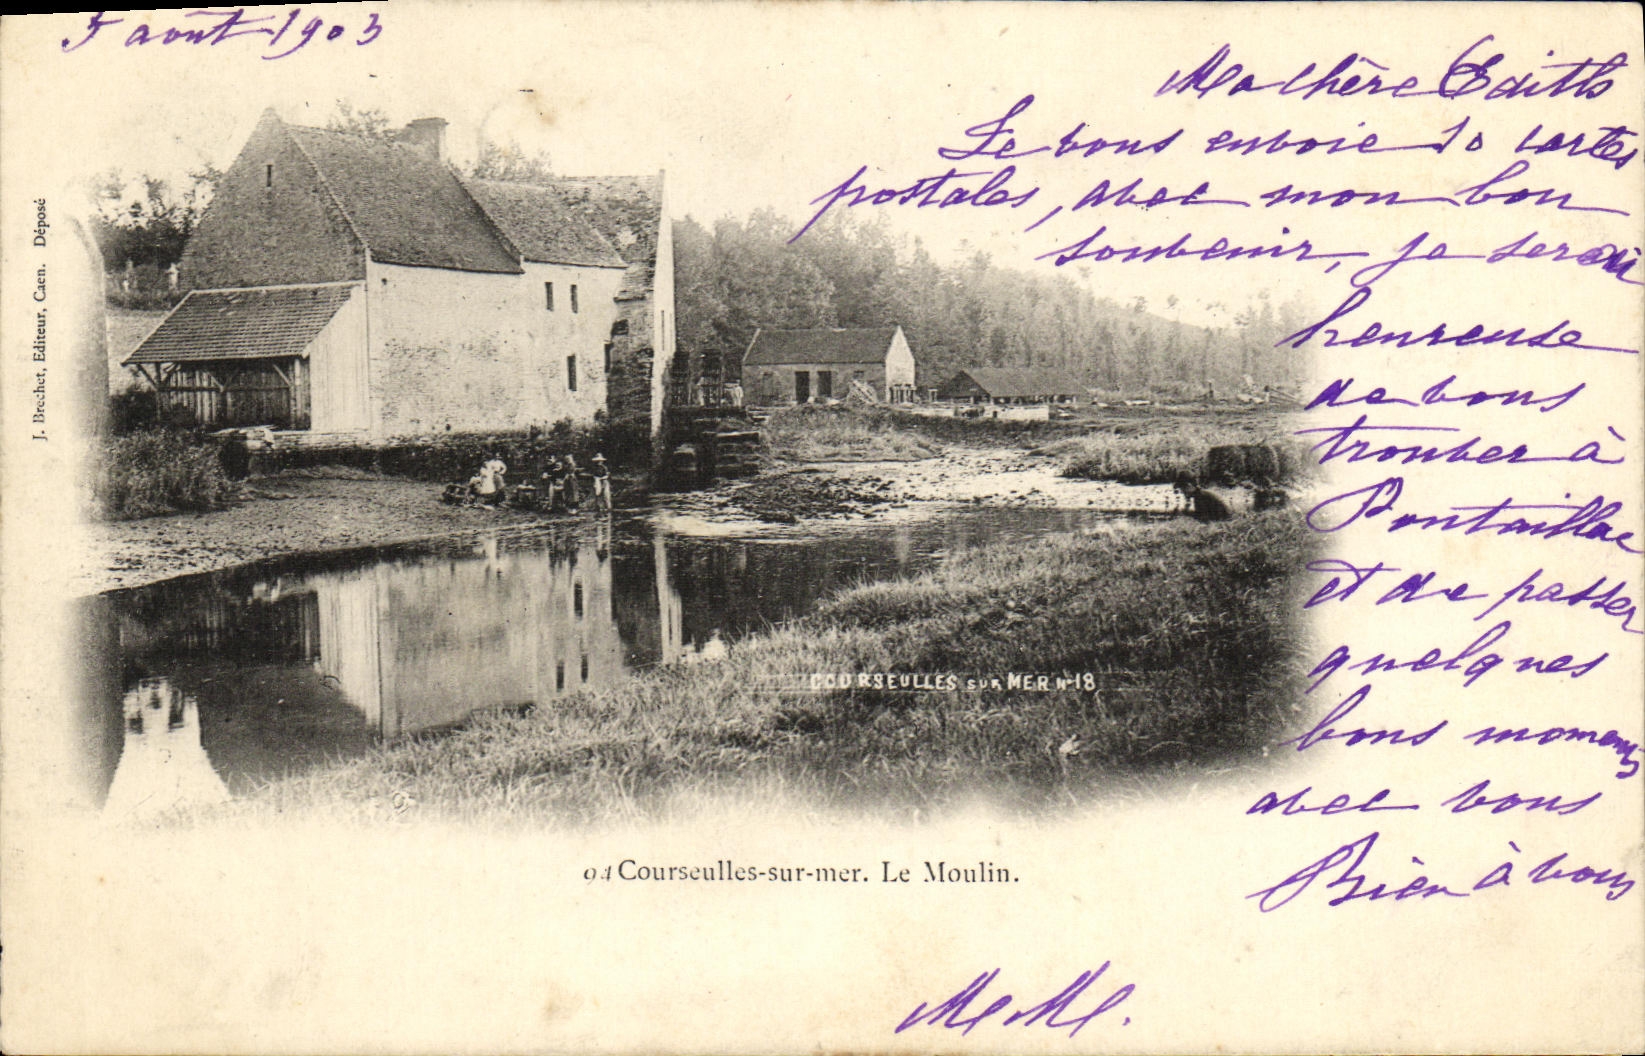 5 août 1903
Ma chère Edith
Je vous envoie 10 cartes
postales, avec mon bon
souvenir, je serai
heureuse
de vous
trouver à
Pontaillac
et de passer
quelques
bons moments
avec vous
Bien à vous
M. M.
J. Brechet, Editeur, Caen. Déposé
COURSEULLES SUR MER N-18
94 Courseulles-sur-mer. Le Moulin.